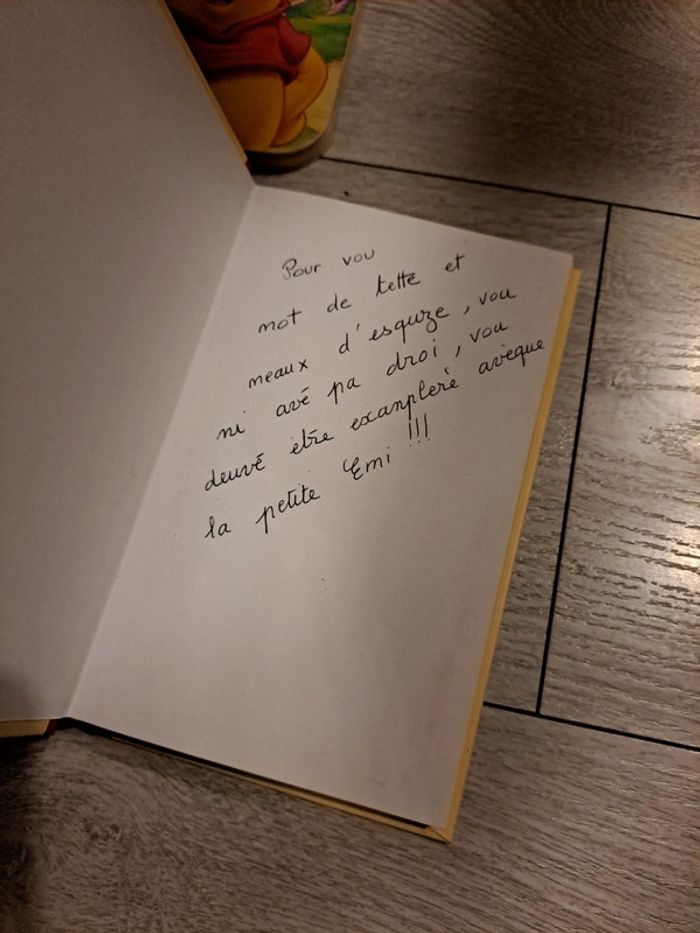 Pour vou
mot de tette et
meaux d'esquze, vou
ni avé pa droi, vou
deuvé etre exanpleré avèque
la petite Emi !!!